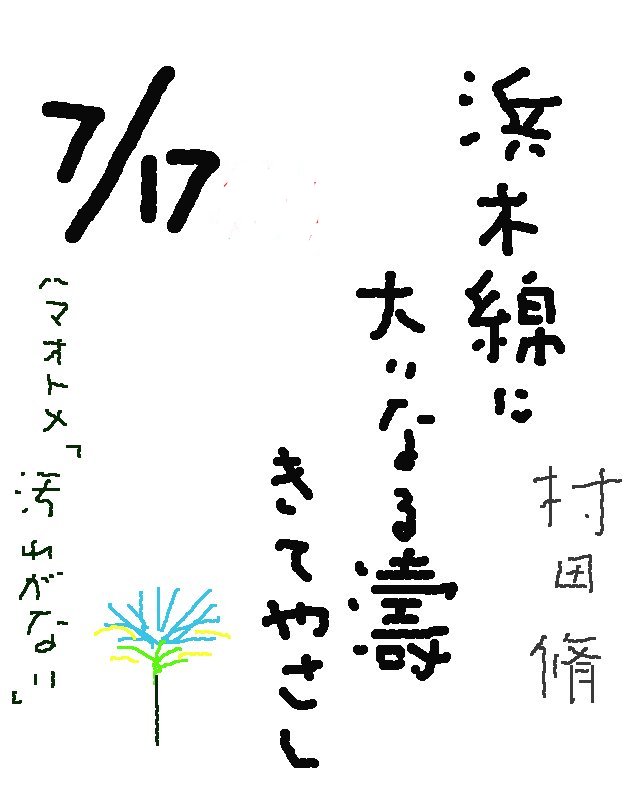 7/17
浜木綿に
大いなる濤
きてやさし
村田脩
ハマオトメ「汚れがない」